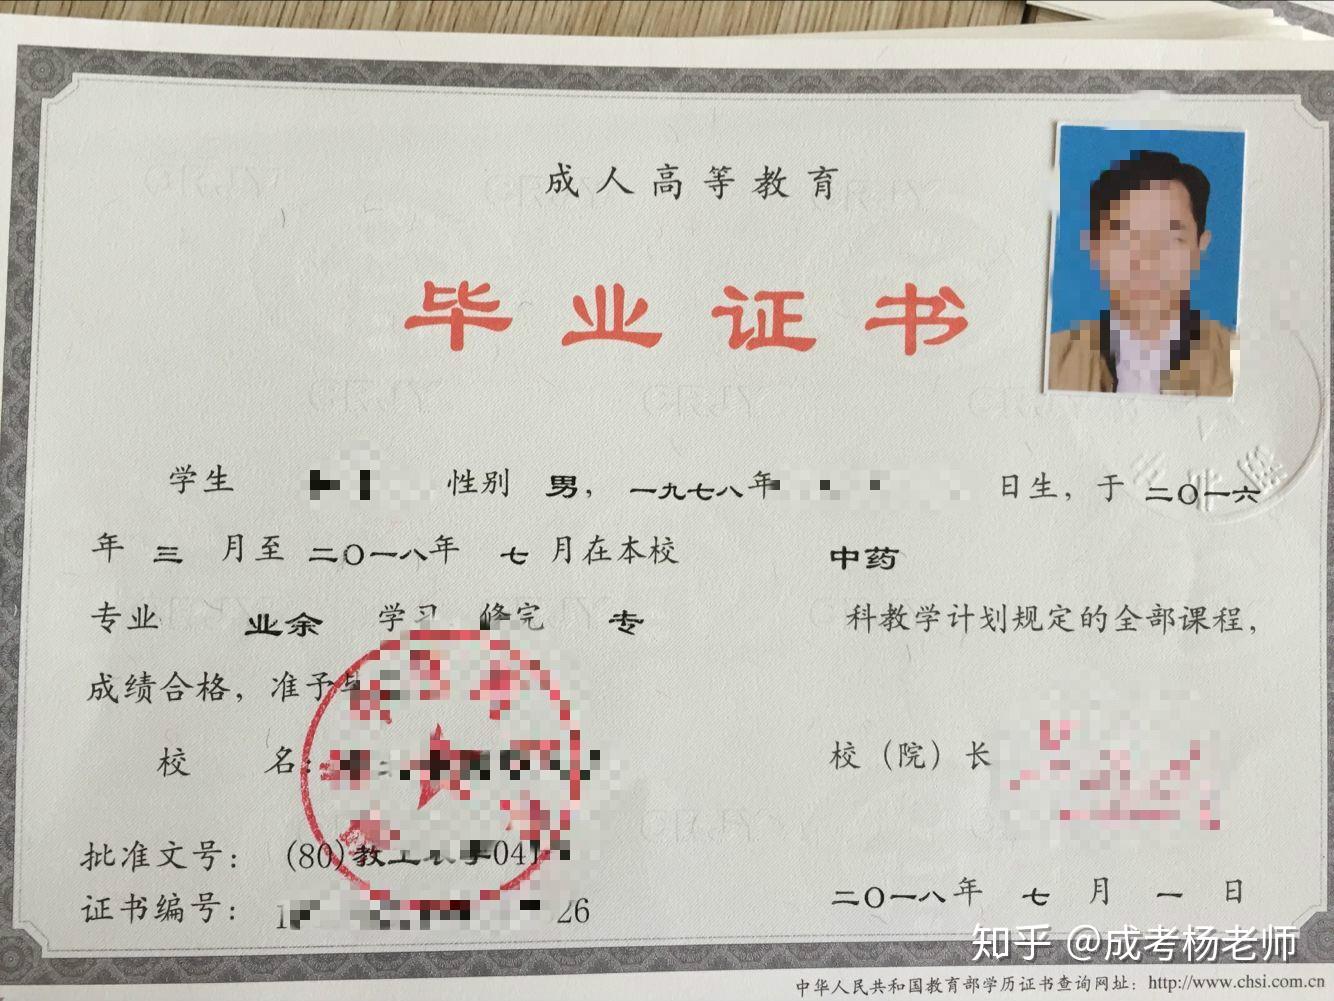 成人高等教育
毕业证书
学生 性别 男，一九七八年 日生，于 二〇一六
年 三 月至 二〇一八年 七 月在本校 中药
专业 业余 学习 修完 专 科教学计划规定的全部课程，
成绩合格，准予
校 名： 校（院）长
批准文号： (80)教工 字041
证书编号： 1 26
二〇一八年 七 月 一 日
知乎 @成考杨老师
中华人民共和国教育部学历证书查询网址：http://www.chsi.com.cn